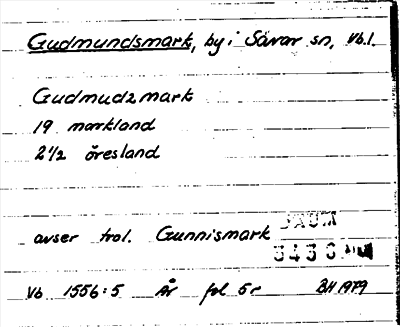 Gudmundsmark, by i Sävar sn, Vb.l.
Gudmudzmark
19 markland
2 1/2 öresland
avser trol. Gunnismark
DAUM
3436
Vb 1556:5 År fol 5r BH 1979